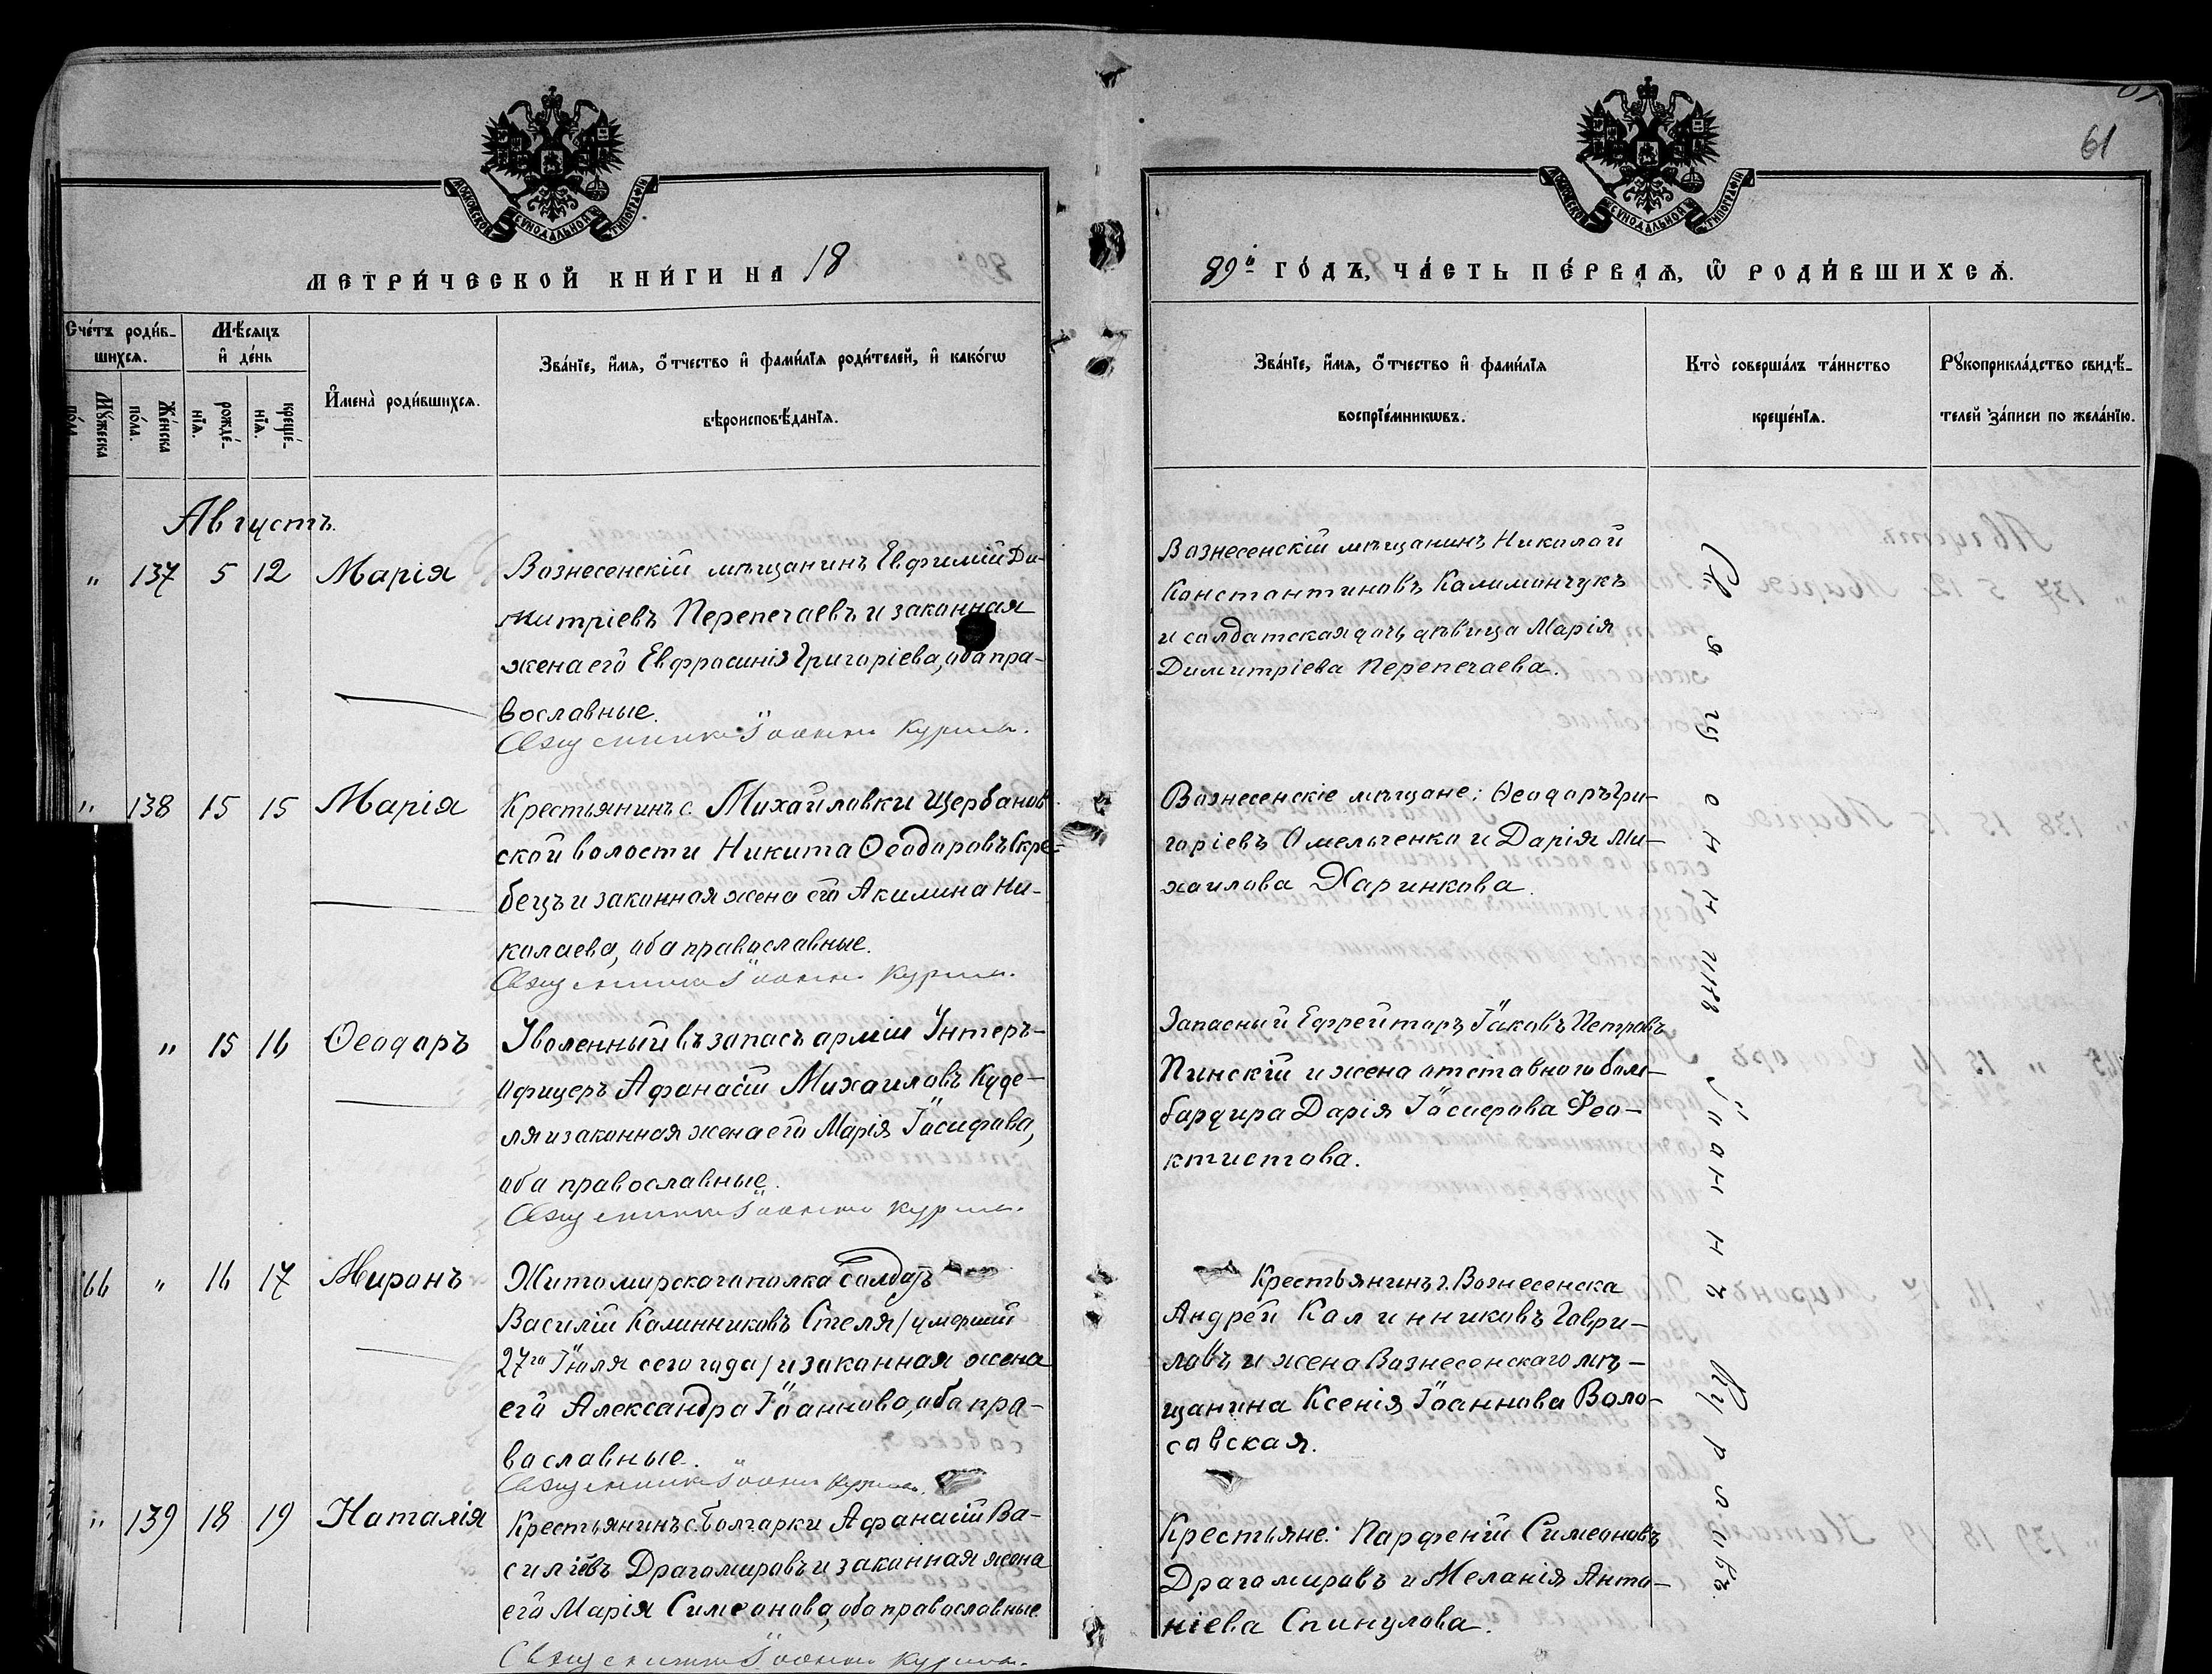 61
МОСКОВСКОЙ СѴНОДАЛЬНОЙ ТИПОГРАФІИ
МОСКОВСКОЙ СѴНОДАЛЬНОЙ ТИПОГРАФІИ
МЕТРИ́ЧЕСКОЙ КНИ́ГИ НА 18
89й ГО́ДЪ, ЧА́СТЬ ПЕ́РВАЯ, Ѡ҆ РОДИ́ВШИХСѦ.
Сче́тъ роди́в-
шихсѧ.
Мѣ́сѧцъ
и҆ де́нь
Мꙋ́жеска
по́ла.
Же́нска
по́ла.
рожде́-
нїѧ.
креще́-
нїѧ.
И҆мена̀ роди́вшихсѧ.
Зва́нїе, и҆́мѧ, ѻ҆́тчество и҆ фами́лїѧ роди́телей, и҆ како́гѡ
вѣроисповѣ́данїѧ.
Зва́нїе, и҆́мѧ, ѻ҆́тчество и҆ фами́лїѧ
воспрїе́мникѡвъ.
Кто̀ соверша́лъ та́инство
креще́нїѧ.
Рꙋкоприкла́дство свидѣ́-
телей за́писи по жела́нїю.
Августъ.
" 137 5 12 Марія
Вознесенскій мѣщанинъ Евфимій Ди-
митріевъ Перепечаевъ и законная
жена его Евфросинія Григоріева, оба пра-
вославные.
Священникъ Іоаннъ Курлов.
Вознесенскій мѣщанинъ Николай
Константиновъ Калиманчукъ
и солдатская дочь дѣвица Марія
Димитріева Перепечаева.
" 138 15 15 Марія
Крестьянинъ с. Михайловки Щербанов-
ской волости Никита Ѳеодоровъ Скре-
бецъ и законная жена его Акилина Ни-
колаева, оба православные.
Священникъ Іоаннъ
Вознесенскіе мѣщане: Ѳеодоръ Гри-
горіевъ Омельченко и Дарія Ми-
хаилова Харинкова.
" 15 16 Ѳеодоръ
Уволенный въ запасъ арміи Унтеръ-
офицеръ Афанасій Михаиловъ Куде-
ля и законная жена его Марія Іосифова,
оба православные.
Священникъ Іоаннъ
Запасный Ефрейторъ Іаковъ Петровъ
Пинскій и жена отставного бом-
бардира Дарія Іосифова Фео-
ктистова.
66 " 16 17 Миронъ
Житомирскаго полка солдатъ
Василій Калинниковъ Стеля /умершій
27го Іюля сего года/ и законная жена
его Александра Іоаннова, оба пра-
вославные.
Священникъ Іоаннъ
Крестьянинъ г. Вознесенска
Андрей Калинниковъ Гаври-
ловъ и жена Вознесенскаго мѣ-
щанина Ксенія Іоаннова Воло-
совская.
" 139 18 19 Наталія
Крестьянинъ с. Болгарки Афанасій Ва-
силіевъ Драгомировъ и законная жена
его Марія Симеонова, оба православные.
Священникъ Іоаннъ
Крестьяне: Парфеній Симеоновъ
Драгомировъ и Меланія Анто-
ніева Спинулова.
Священникъ Іоаннъ